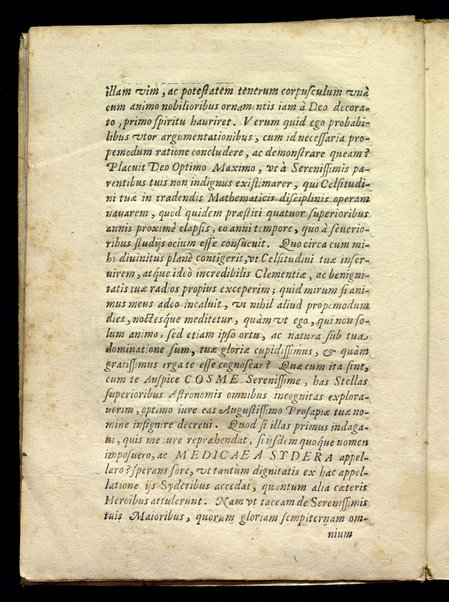 illam vim, ac potestatem tenerum corpusculum vnà
cum animo nobilioribus ornamentis iam à Deo decora-
to, primo spiritu hauriret. Verum quid ego probabi-
libus vtor argumentationibus, cum id necessaria pro-
pemodum ratione concludere, ac demonstrare queam?
Placuit Deo Optimo Maximo, vt à Serenissimis pa-
rentibus tuis non indignus existimarer, qui Celsitudi-
ni tuæ in tradendis Mathematicis disciplinis operam
nauarem, quod quidem præstiti quatuor superioribus
annis proximè elapsis, eo anni tempore, quo à seuerio-
ribus studijs ocium esse consueuit. Quo circa cum mi-
hi diuinitus planè contigerit, vt Celsitudini tuæ inser-
uirem, atque ideò incredibilis Clementiæ, ac benigni-
tatis tuæ radios propius exceperim; quid mirum si ani-
mus meus adeo incaluit, vt nihil aliud propemodum
dies, noctesque meditetur, quàm vt ego, qui non so-
lum animo, sed etiam ipso ortu, ac natura sub tua
dominatione sum, tuæ gloriæ cupidissimus, & quàm
gratissimus erga te esse cognoscar? Quæ cum ita sint,
cum te Auspice COSME Serenissime, has Stellas
superioribus Astronomis omnibus incognitas explora-
uerim, optimo iure eas Augustissimo Prosapiæ tuæ no-
mine insignire decreui. Quod si illas primus indaga-
ui, quis me iure reprehendat, si ijsdem quoque nomen
imposuero, ac MEDICAEA SYDERA appel-
laro? sperans fore, vt tantum dignitatis ex hac appel-
latione ijs Syderibus accedat, quantum alia cæteris
Heroibus attulerunt. Nam vt taceam de Serenissimis
tuis Maioribus, quorum gloriam sempiternam om-
nium